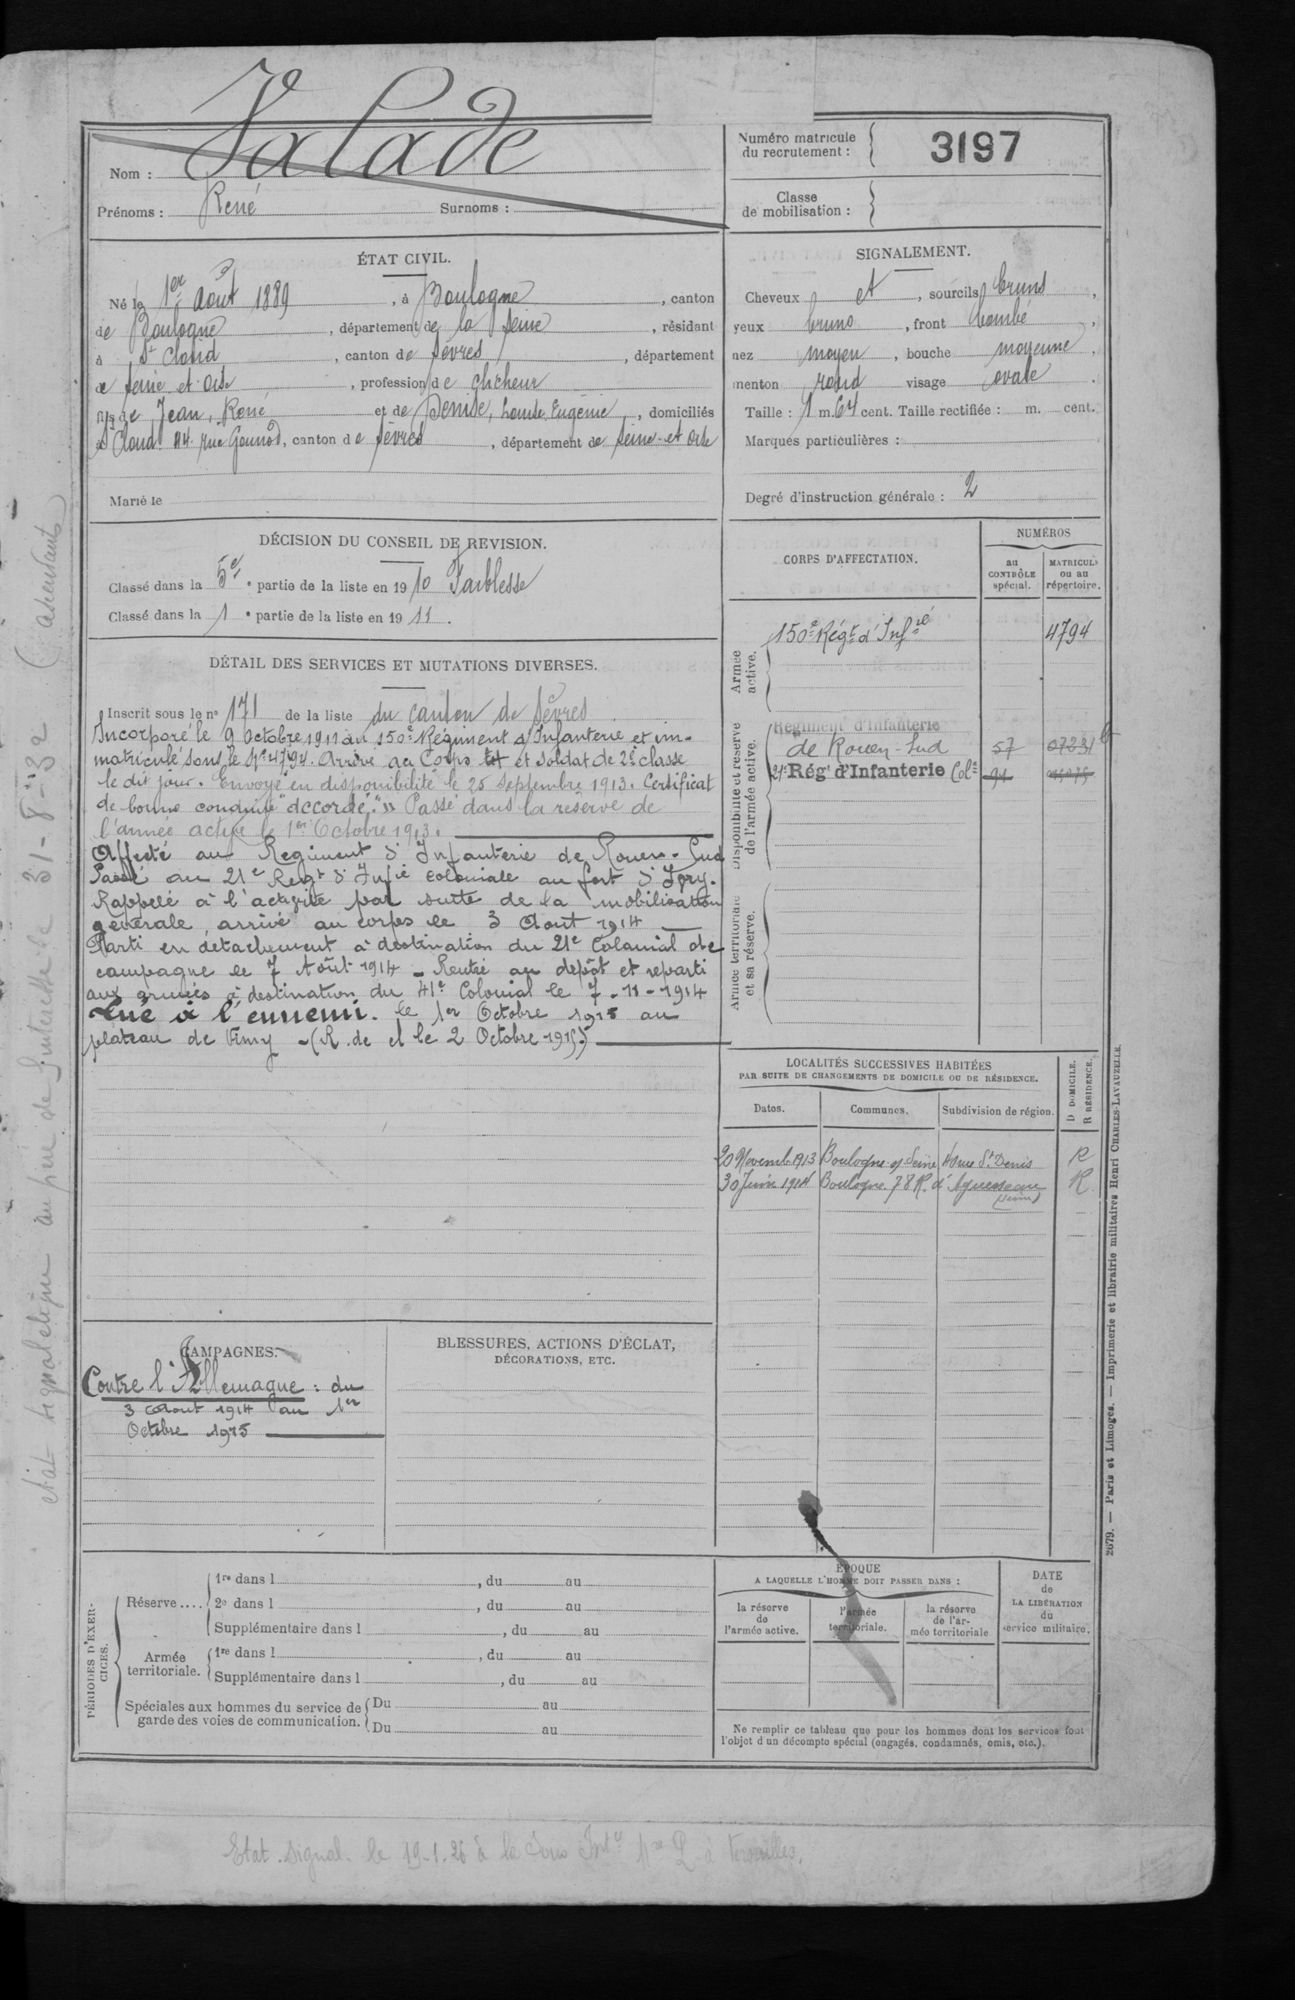 Valade
Nom :
Prénoms : René Surnoms :
Numéro matricule
du recrutement : 3197
Classe
de mobilisation :
ÉTAT CIVIL.
Né le 1er Aout 1889, à Boulogne, canton
de Boulogne, département de la Seine, résidant
à St Cloud, canton de Sèvres, département
de Seine et Oise, profession de
fils de Jean, René et de Denise, Louise, Eugénie, domiciliés
St Cloud 44 rue Gounod, canton de Sèvres, département de Seine-et Oise
Marié le
SIGNALEMENT.
Cheveux et, sourcils bruns,
yeux bruns, front bombé,
nez moyen, bouche moyenne,
menton rond visage ovale.
Taille : 1 m. 64 cent. Taille rectifiée : m. cent.
Marques particulières :
Degré d'instruction générale : 2
DÉCISION DU CONSEIL DE REVISION.
Classé dans la 5e partie de la liste en 1910 Faiblesse
Classé dans la 1e partie de la liste en 1911.
DÉTAIL DES SERVICES ET MUTATIONS DIVERSES.
Inscrit sous le no 171 de la liste du canton de Sèvres
Incorporé le 9 Octobre 1911 au 150e Régiment d'Infanterie et im-
matriculé sous le No 4794. Arrivé au Corps et soldat de 2e classe
le dit jour. Envoyé en disponibilité le 25 Septembre 1913. Certificat
de bonne conduite "accordé." Passé dans la réserve de
l'armée active le 1er Octobre 1913.
Affecté au Régiment d'Infanterie de Rouen-Sud
Passé au 21e Regt d'Infie coloniale au fort d'Ivry.
Rappelé à l'activité par suite de la mobilisation
générale, arrivé au corps le 3 Aout 1914
Parti en détachement à destination du 21e Colonial de
campagne le 7 Août 1914 - Rentré au dépôt et reparti
aux armées à destination du 41e Colonial le 7-11-1914
Tué à l'ennemi. le 1er Octobre 1915 au
plateau de Vimy - (R. de el le 2 Octobre 1915)
CORPS D'AFFECTATION.
NUMÉROS
au
CONTRÔLE
spécial.
MATRICULE
ou au
répertoire.
Armée
active.
150e Régt d'Infrie 4794
Disponibilité et réserve
de l'armée active.
Régiment d'Infanterie
de Rouen-Sud 57
21e Rég't d'Infanterie Cole
Armée territoriale
et sa réserve.
LOCALITÉS SUCCESSIVES HABITÉES
PAR SUITE DE CHANGEMENTS DE DOMICILE OU DE RÉSIDENCE.
Dates. Communes. Subdivision de région.
D DOMICILE.
R RÉSIDENCE.
20 Novemb 1913 Boulogne s/ Seine rue St Denis R
30 Juin 1914 Boulogne 78 R. d'Aguesseau R
(Seine)
CAMPAGNES.
Contre l'Allemagne : du
3 Aout 1914 au 1er
Octobre 1915
BLESSURES, ACTIONS D'ÉCLAT,
DÉCORATIONS, ETC.
PÉRIODES D'EXER-
CICES.
Réserve....
1re dans l , du au
2e dans l , du au
Supplémentaire dans l , du au
Armée
territoriale.
1re dans l , du au
Supplémentaire dans l , du au
Spéciales aux hommes du service de
garde des voies de communication.
Du au
Du au
ÉPOQUE
A LAQUELLE L'HOMME DOIT PASSER DANS :
la réserve
de
l'armée active.
l'armée
territoriale.
la réserve
de l'ar-
mée territoriale
DATE
de
LA LIBÉRATION
du
service militaire.
Ne remplir ce tableau que pour les hommes dont les services font
l'objet d'un décompte spécial (engagés, condamnés, omis, etc.).
2679. — Paris et Limoges. — Imprimerie et librairie militaires Henri CHARLES-LAVAUZELLE.
état signalétique au père de l'intéressé le 31-8-32 (ascendants)
Etat signal. le 19.1.26 à la Sous Intce à Versailles.